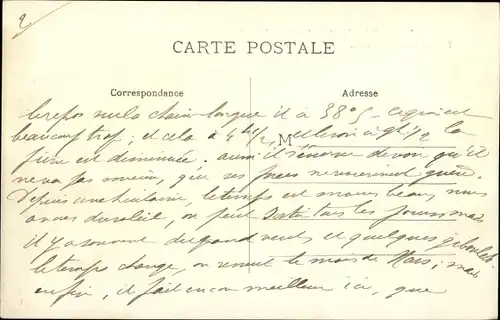 2
CARTE POSTALE
Correspondance
Adresse
repos sur la chaise longue il a 38°5 - ce qui est
beaucoup trop; et cela à 4 h 1/2, et le soir à 9 h 1/2 la
M
fièvre est diminuée. aussi il s'énerve de voir qu'il
ne va pas mieux, que ses forces reviennent guère.
Depuis une huitaine, le temps est moins beau, nous
avons du soleil, on peut sortir tous les jours mais
il y a souvent du grand vent et quelques giboulées
le temps change, on ressent le mois de Mars; mais
enfin, il fait encore meilleur ici, que